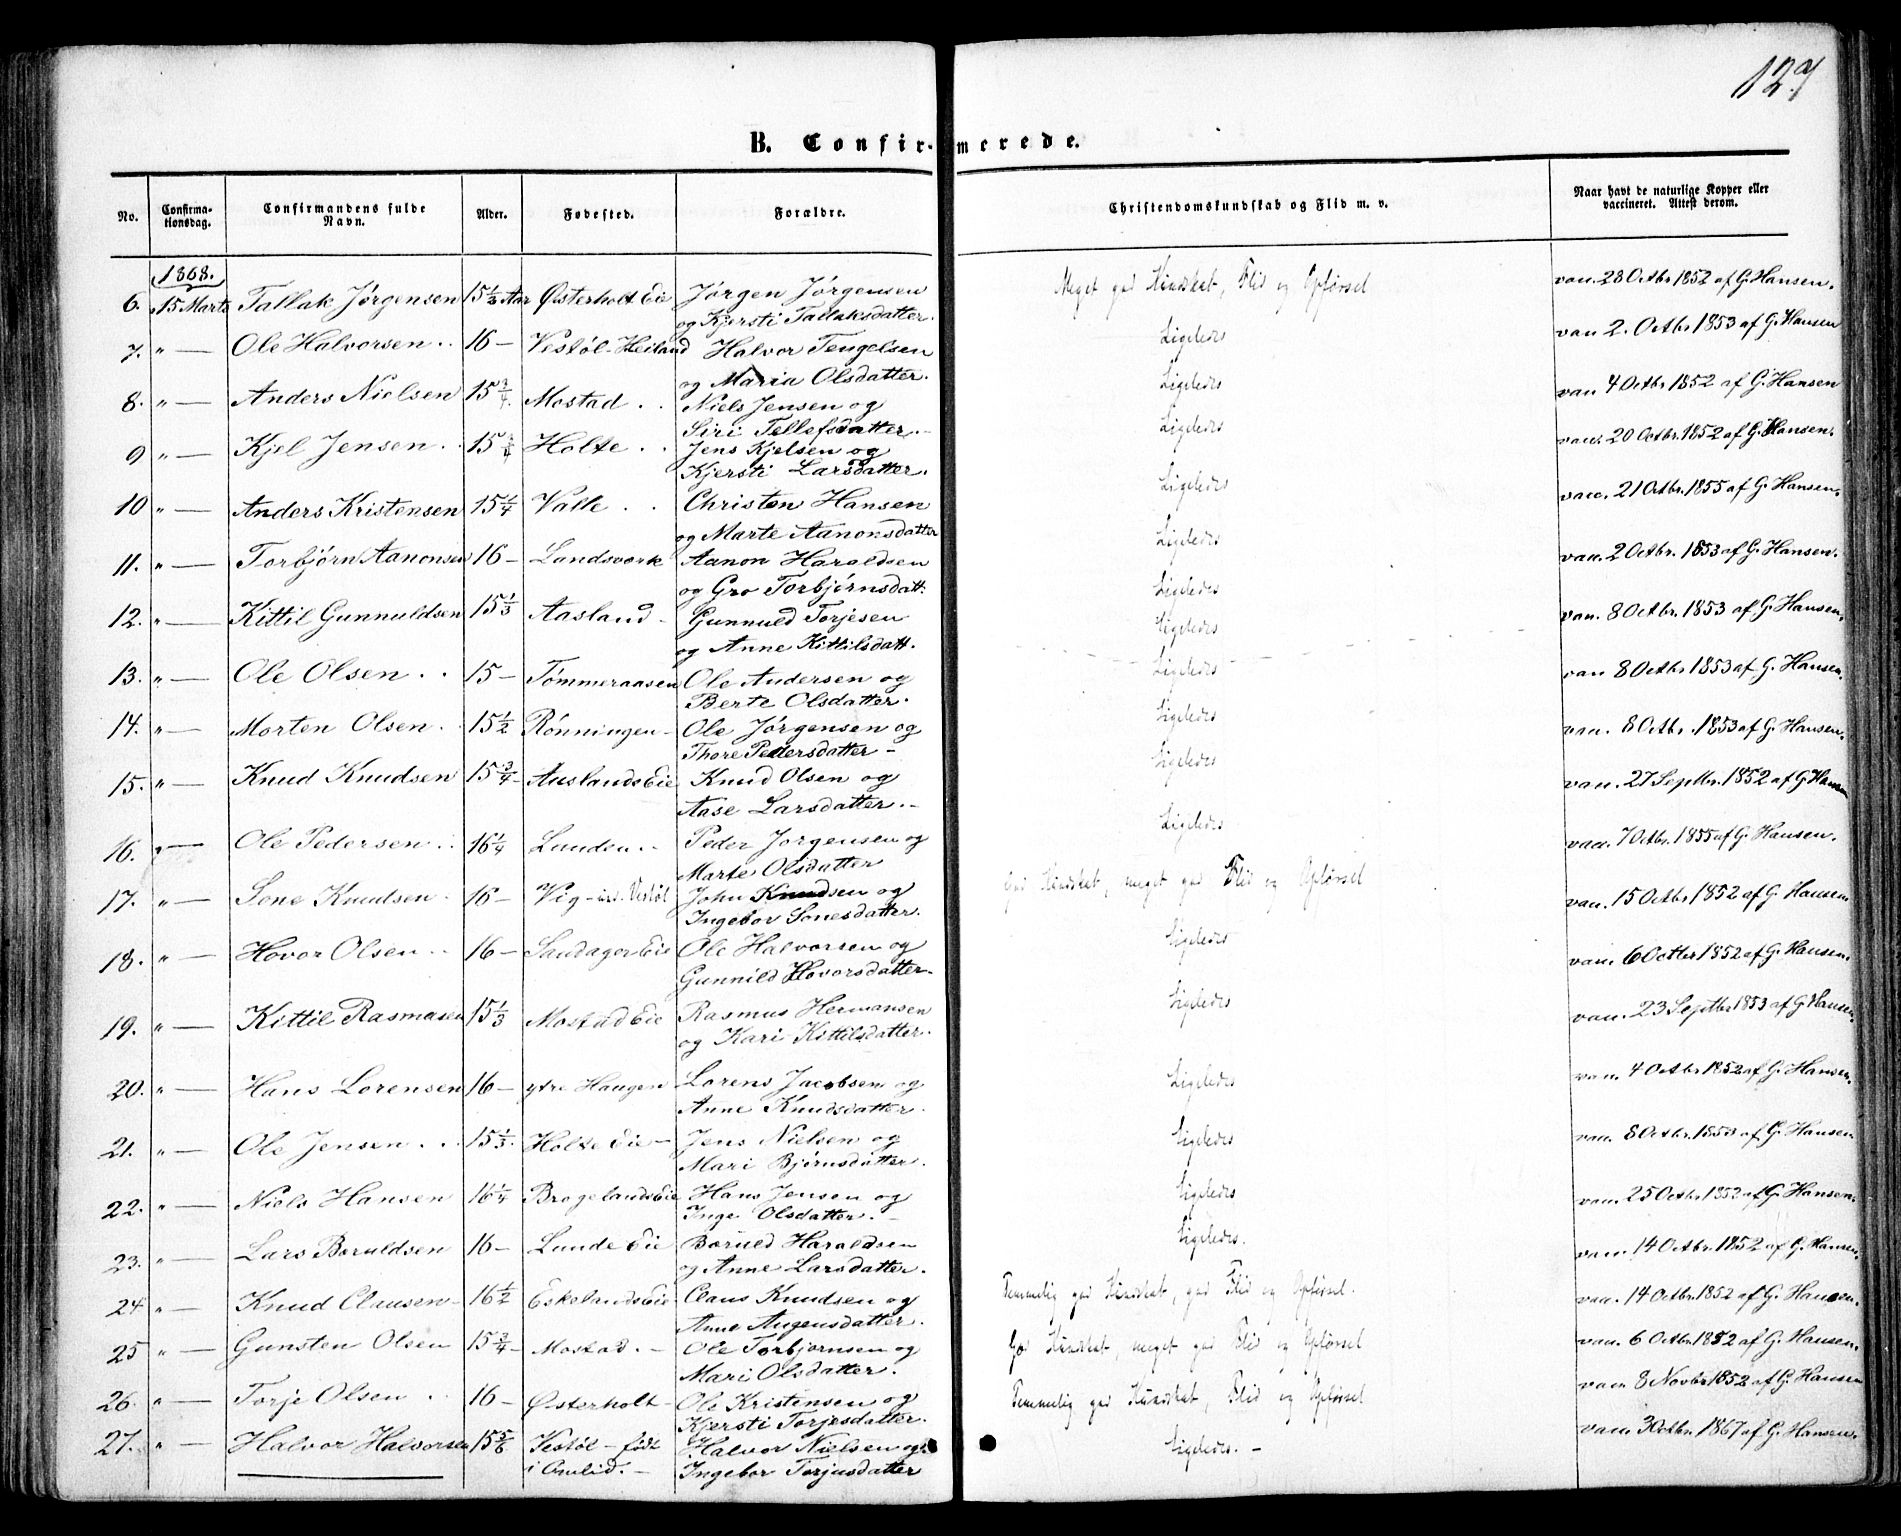 127
B. Confirmerede.
No. Confirmationsdag. Confirmandens fulde Navn. Alder. Fødested. Forældre. Christendomskundskab og Flid m. v. Naar havt de naturlige Kopper eller vaccineret. Attest derom.
1868.
6. 15 Marts Tallak Jørgensen 15 1/2 Aar Østerholt Eie Jørgen Jørgensen Meget god Kundskab, Flid og Opførsel vac. 28 Octbr 1852 af G. Hansen.
og Kjersti Tallaksdatter.
7. " — Ole Halvorsen 16 — Vestøl-Heiland Halvor Tengelsen Ligeledes vac. 2. Octbr 1853 af G. Hansen
og Maria Olsdatter.
8. " — Anders Nielsen 15 3/4 Mostad Niels Jensen og Ligeledes vac. 4 Octbr 1852 af G. Hansen
Siri Tellefsdatter.
9 " — Kjel Jensen 15 Holte Jens Kjelsen og Ligeledes vac. 20 Octbr. 1852 af G. Hansen.
Kjersti Larsdatter.
10 " — Anders Kristensen 15 1/4 Valle Christen Hansen Ligeledes vac. 21 Octbr. 1855 af G. Hansen.
og Marte Aanonsdatter
11. " — Torbjørn Aanonsen 16 — Landsverk Aanon Haraldsen Ligeledes vac. 2 Octbr. 1853 af G. Hansen.
og Gro Torbjørnsdatt:
12. " — Kittil Gunnuldsen 15 1/3 Aasland — Gunnuld Torjesen Ligeledes vac. 8 Octbr. 1853 af G. Hansen.
og Anne Kittilsdatt. Ligeledes
13. " — Ole Olsen 15 — Tømmeraasen Ole Andersen og Ligeledes vac 8 Octbr 1853 af G. Hansen.
Berte Olsdatter.
14. " — Morten Olsen 15 1/2 Rønningen — Ole Jørgensen og Ligeledes vac. 8 Octbr. 1853 af G. Hansen.
Thore Pedersdatter —
15. " — Knud Knudsen 15 3/4 Auslands Eie Knud Olsen og Ligeledes vac. 27 Septbr. 1852 af G. Hansen
Aase Larsdatter. —
16. " — Ole Pedersen 16 1/4 Lunden Peder Jørgensen og Ligeledes vac. 7 Octbr. 1855 af G. Hansen.
Marte Olsdatter
17. " — Sone Knudsen 16 — Vig — Vestøl John Knudsen og God Kundskab, meget god Flid og Opførsel vac. 15 Octbr 1852 af G. Hansen.
Ingebor Sonesdatter.
18. " — Hovor Olsen 16 — Sandager Eie Ole Halvorsen og Ligeledes vac. 6 Octber 1852 af G. Hansen.
Gunnild Hovorsdatter.
19. " — Kittil Rasmusen 15 1/3 Mostad Eie Rasmus Hermansen Ligeledes vac. 23 Septbr 1853 af G. Hansen.
og Kari Kittilsdatter.
20. " — Hans Lorensen 16 — ytre Haugen Lorens Jacobsen og Ligeledes vac. 4 Octbr 1852 af G. Hansen.
Anne Knudsdatter.
21. " — Ole Jensen 15 1/3 Holte Eie — Jens Nielsen og Ligeledes vac. 8 Octbr. 1853 af G. Hansen
Mari Bjørnsdatter.
22. " — Niels Hansen 16 1/4 Brogelands Eie Hans Jensen og Ligeledes vac. 25 Octbr 1852 af G. Hansen.
Inge Olsdatter. —
23. " — Lars Boruldsen 16 — Lunde Eie Boruld Haraldsen Ligeledes. vac. 14 Octbr. 1852 af G. Hansen.
og Anne Larsdatter.
24 " — Knud Clausen 16 1/2 Eskelands Eie Claus Knudsen og Temmelig god Kundskab, god Flid og Opførsel. vac. 14 Octbr. 1852 af G. Hansen.
Anne Augensdatter.
25 " — Gunsten Olsen 15 3/4 Mostad. — Ole Torbjørnsen og God Kundskab, meget god Flid og Opførsel vac. 6 Octbr. 1852 af G. Hansen.
Mari Olsdatter.
26. " — Torje Olsen 16 — Østerholt — Ole Kristensen og Temmelig god Kundskab, Flid og Opførsel vac. 8 Novbr 1852 af G. Hansen
Kjersti Torjesdatter.
27. " — Halvor Halvorsen 15 5/6 Vestøl — født Halvor Nielsen og Ligeledes. — vac. 3 Octbr. 1867 af G. Hansen.
i Omlid. — Ingebor Torjusdatter